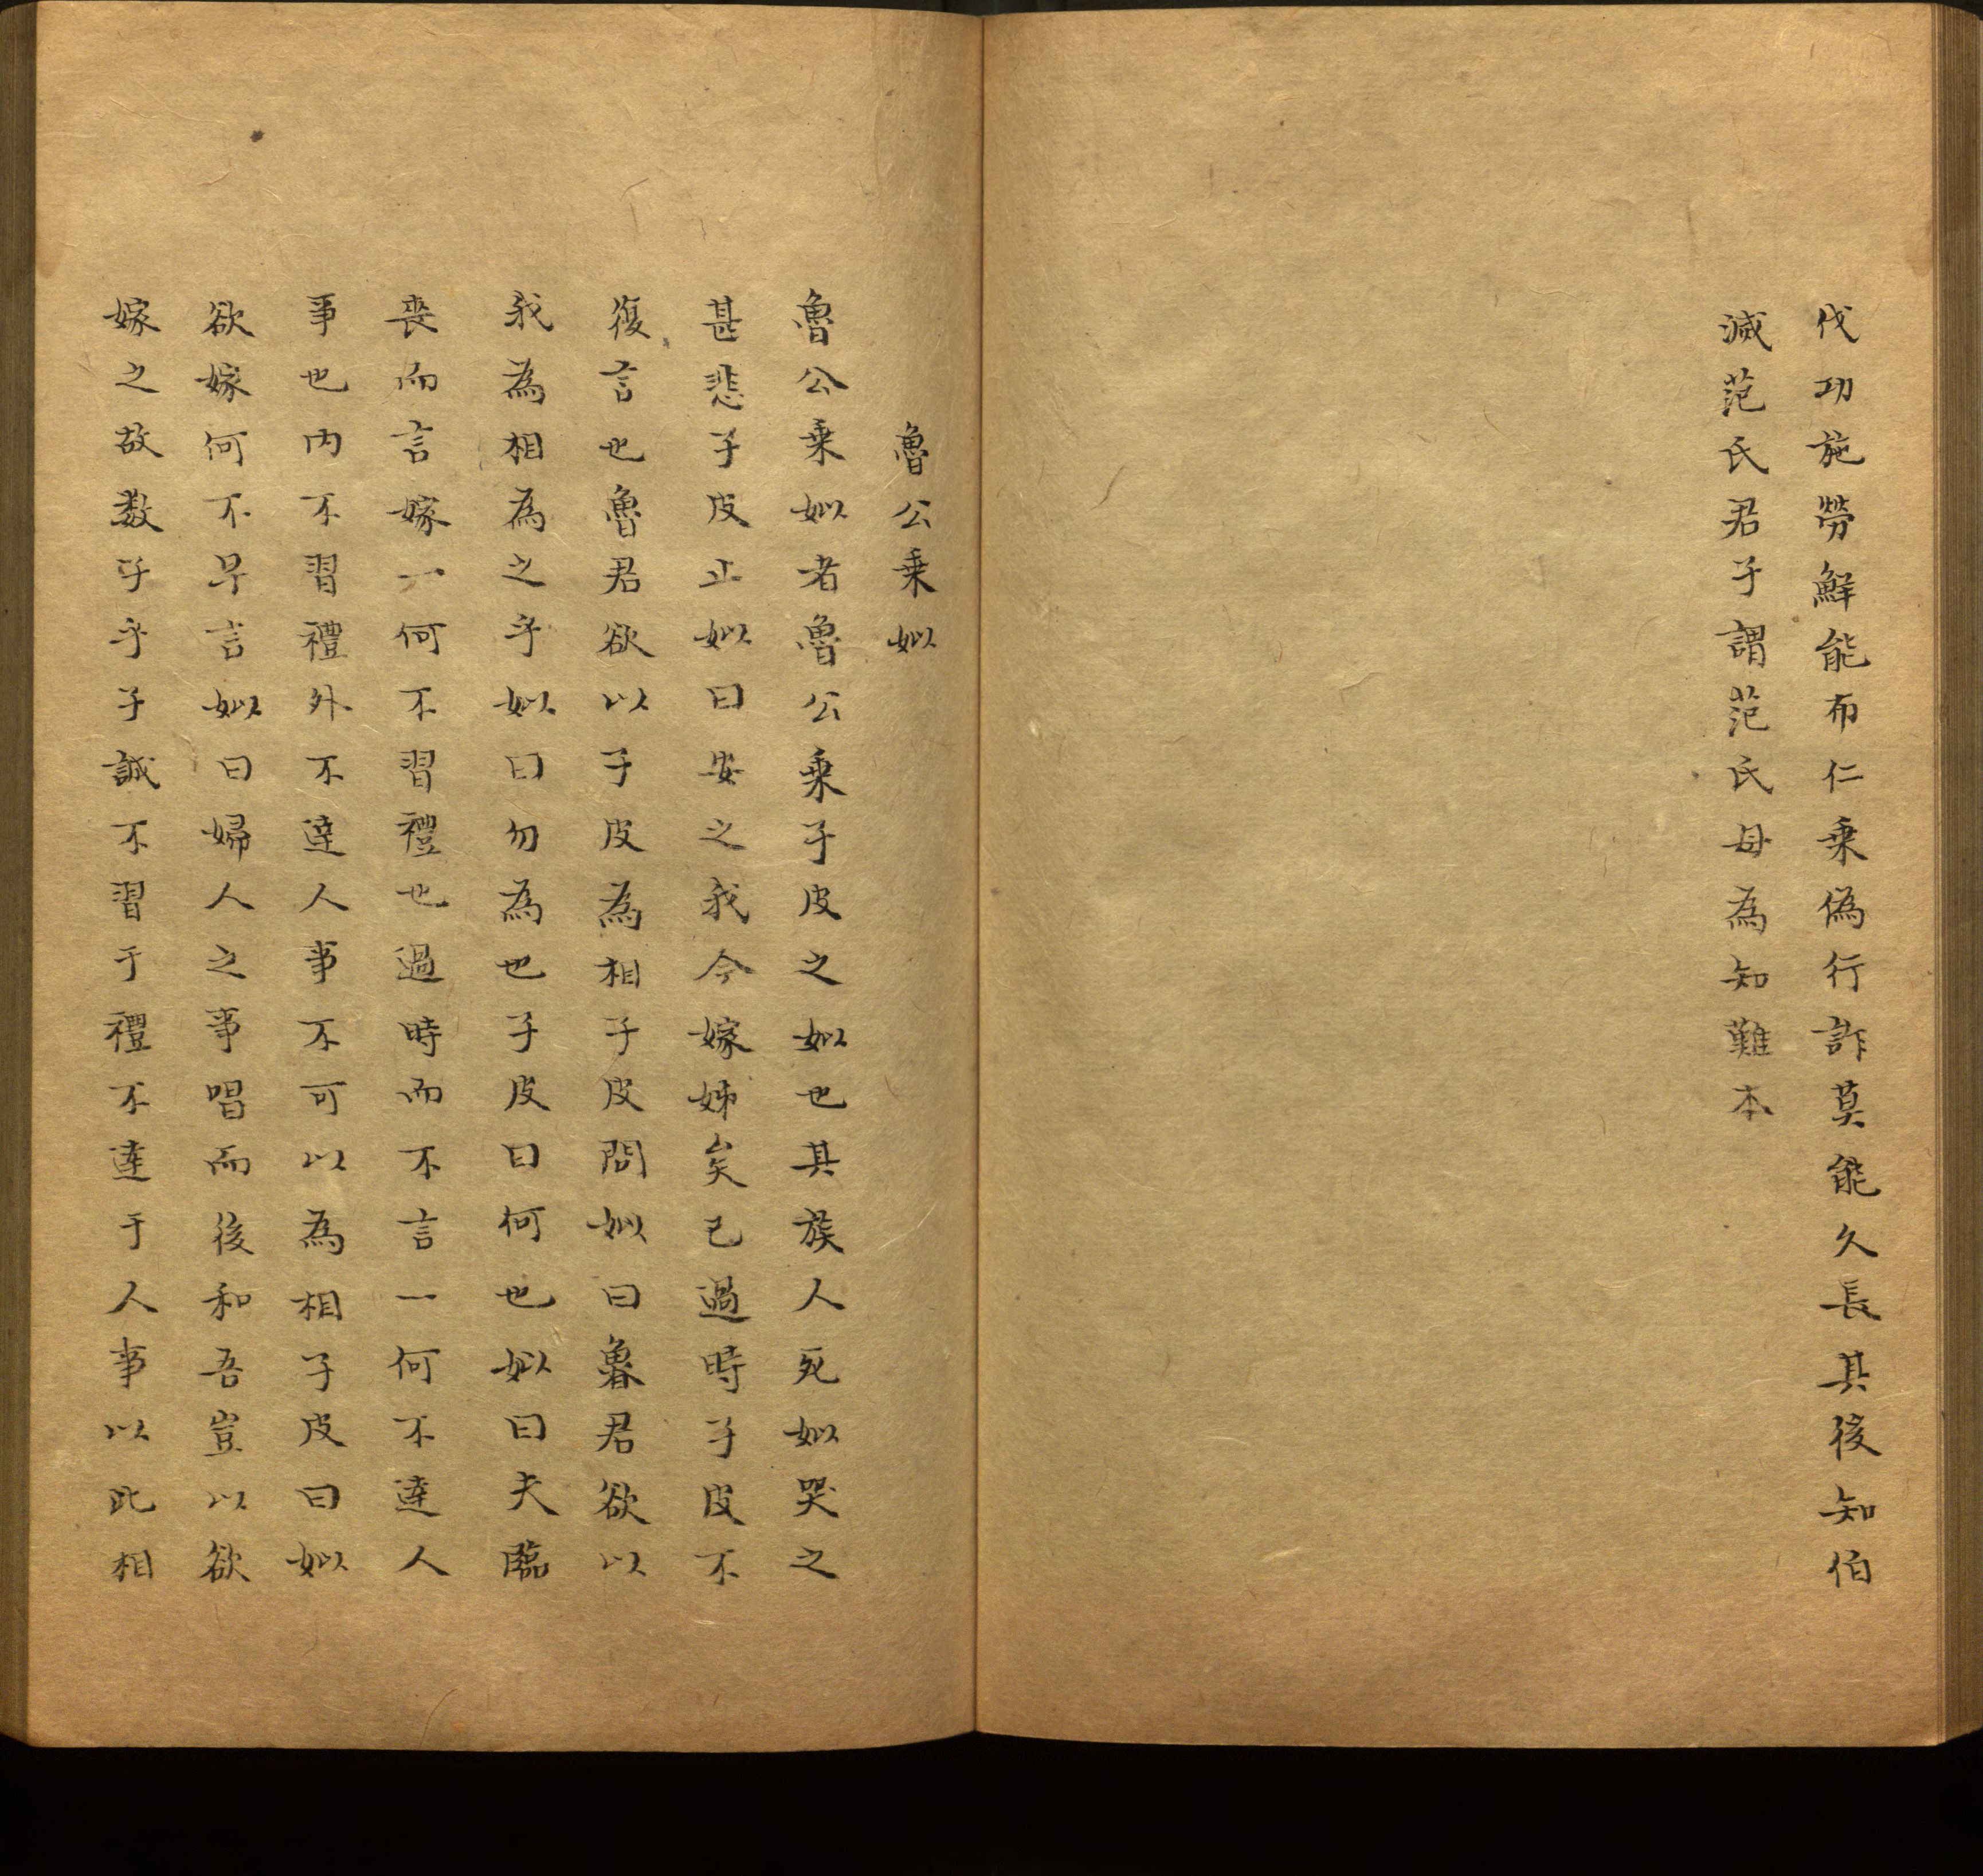 伐功施勞鮮能布仁乗偽行詐莫能久長其後知伯
滅范氏君子謂范氏母為知難本
魯公乗姒
魯公乗姒者魯公乗子皮之姒也其族人死姒哭之
甚悲子皮止姒曰安之我今嫁姊矣已過時子皮不
復言也魯君欲以子皮為相子皮問姒曰魯君欲以
我為相為之乎姒曰勿為也子皮曰何也姒曰夫臨
喪而言嫁一何不習禮也過時而不言一何不達人
事也内不習禮外不達人事不可以為相子皮曰姒
欲嫁何不早言姒曰婦人之事唱而後和吾豈以欲
嫁之故数子乎子誠不習于禮不達于人事以此相